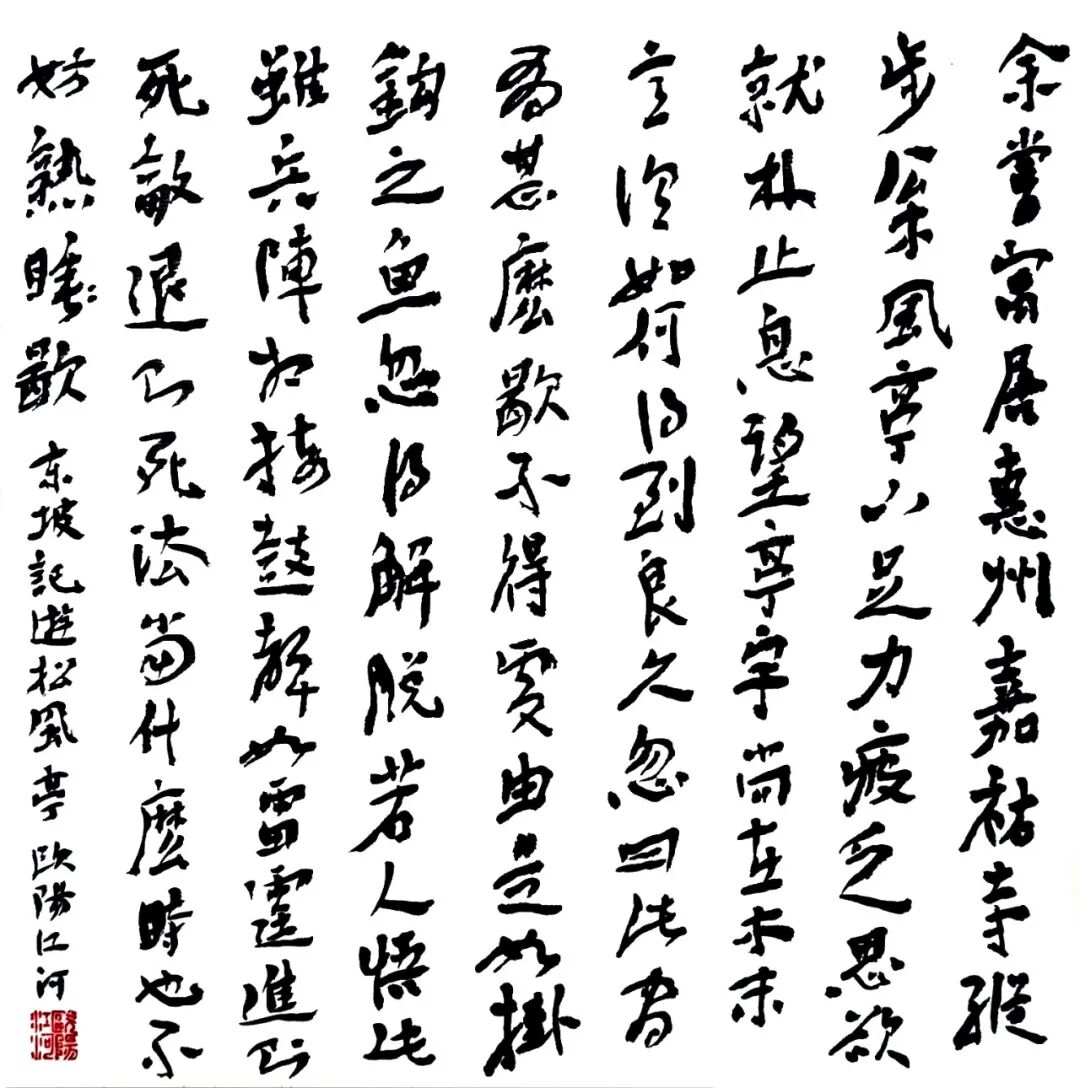 余嘗寓居惠州嘉祐寺縱
步枀風亭下足力疲乏思欲
就林止息望亭宇尚在木末
意謂如何得到良久忽曰此間
有甚麽歇不得處由是如掛
鈎之魚忽得解脱若人悟此
雖兵陣相接鼓聲如雷霆進則
死敵退則死法當什麽時也不
妨熟睡歇
东坡記遊松風亭 歐陽江河
歐陽江河